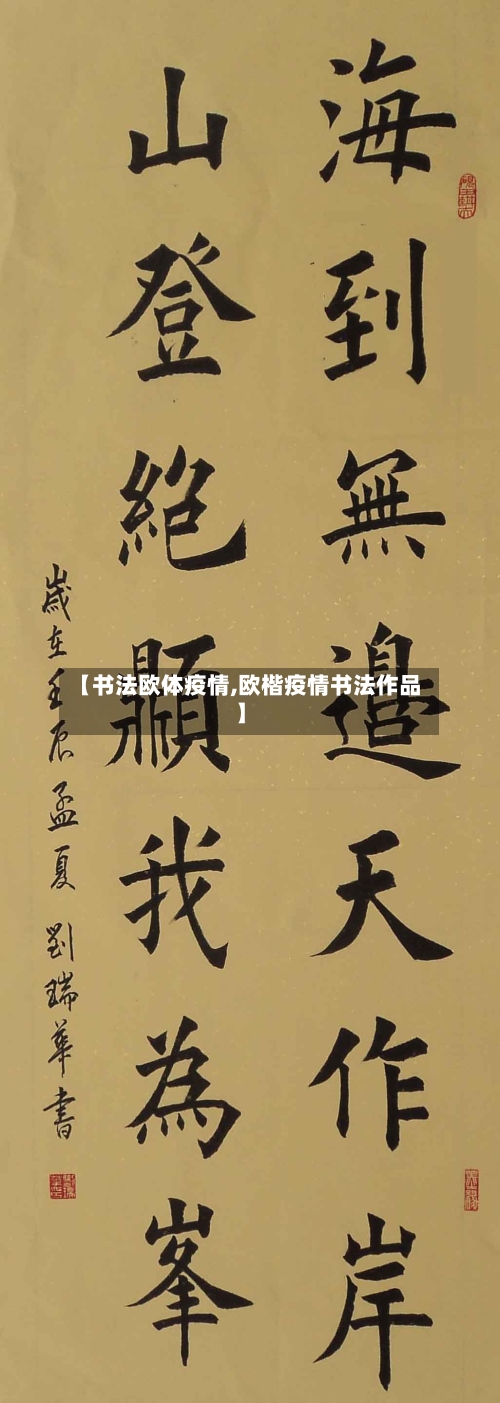 海到無邊天作岸
山登絕顥我為峯
歲在壬辰孟夏 劉瑞華書
【书法欧体疫情,欧楷疫情书法作品
】